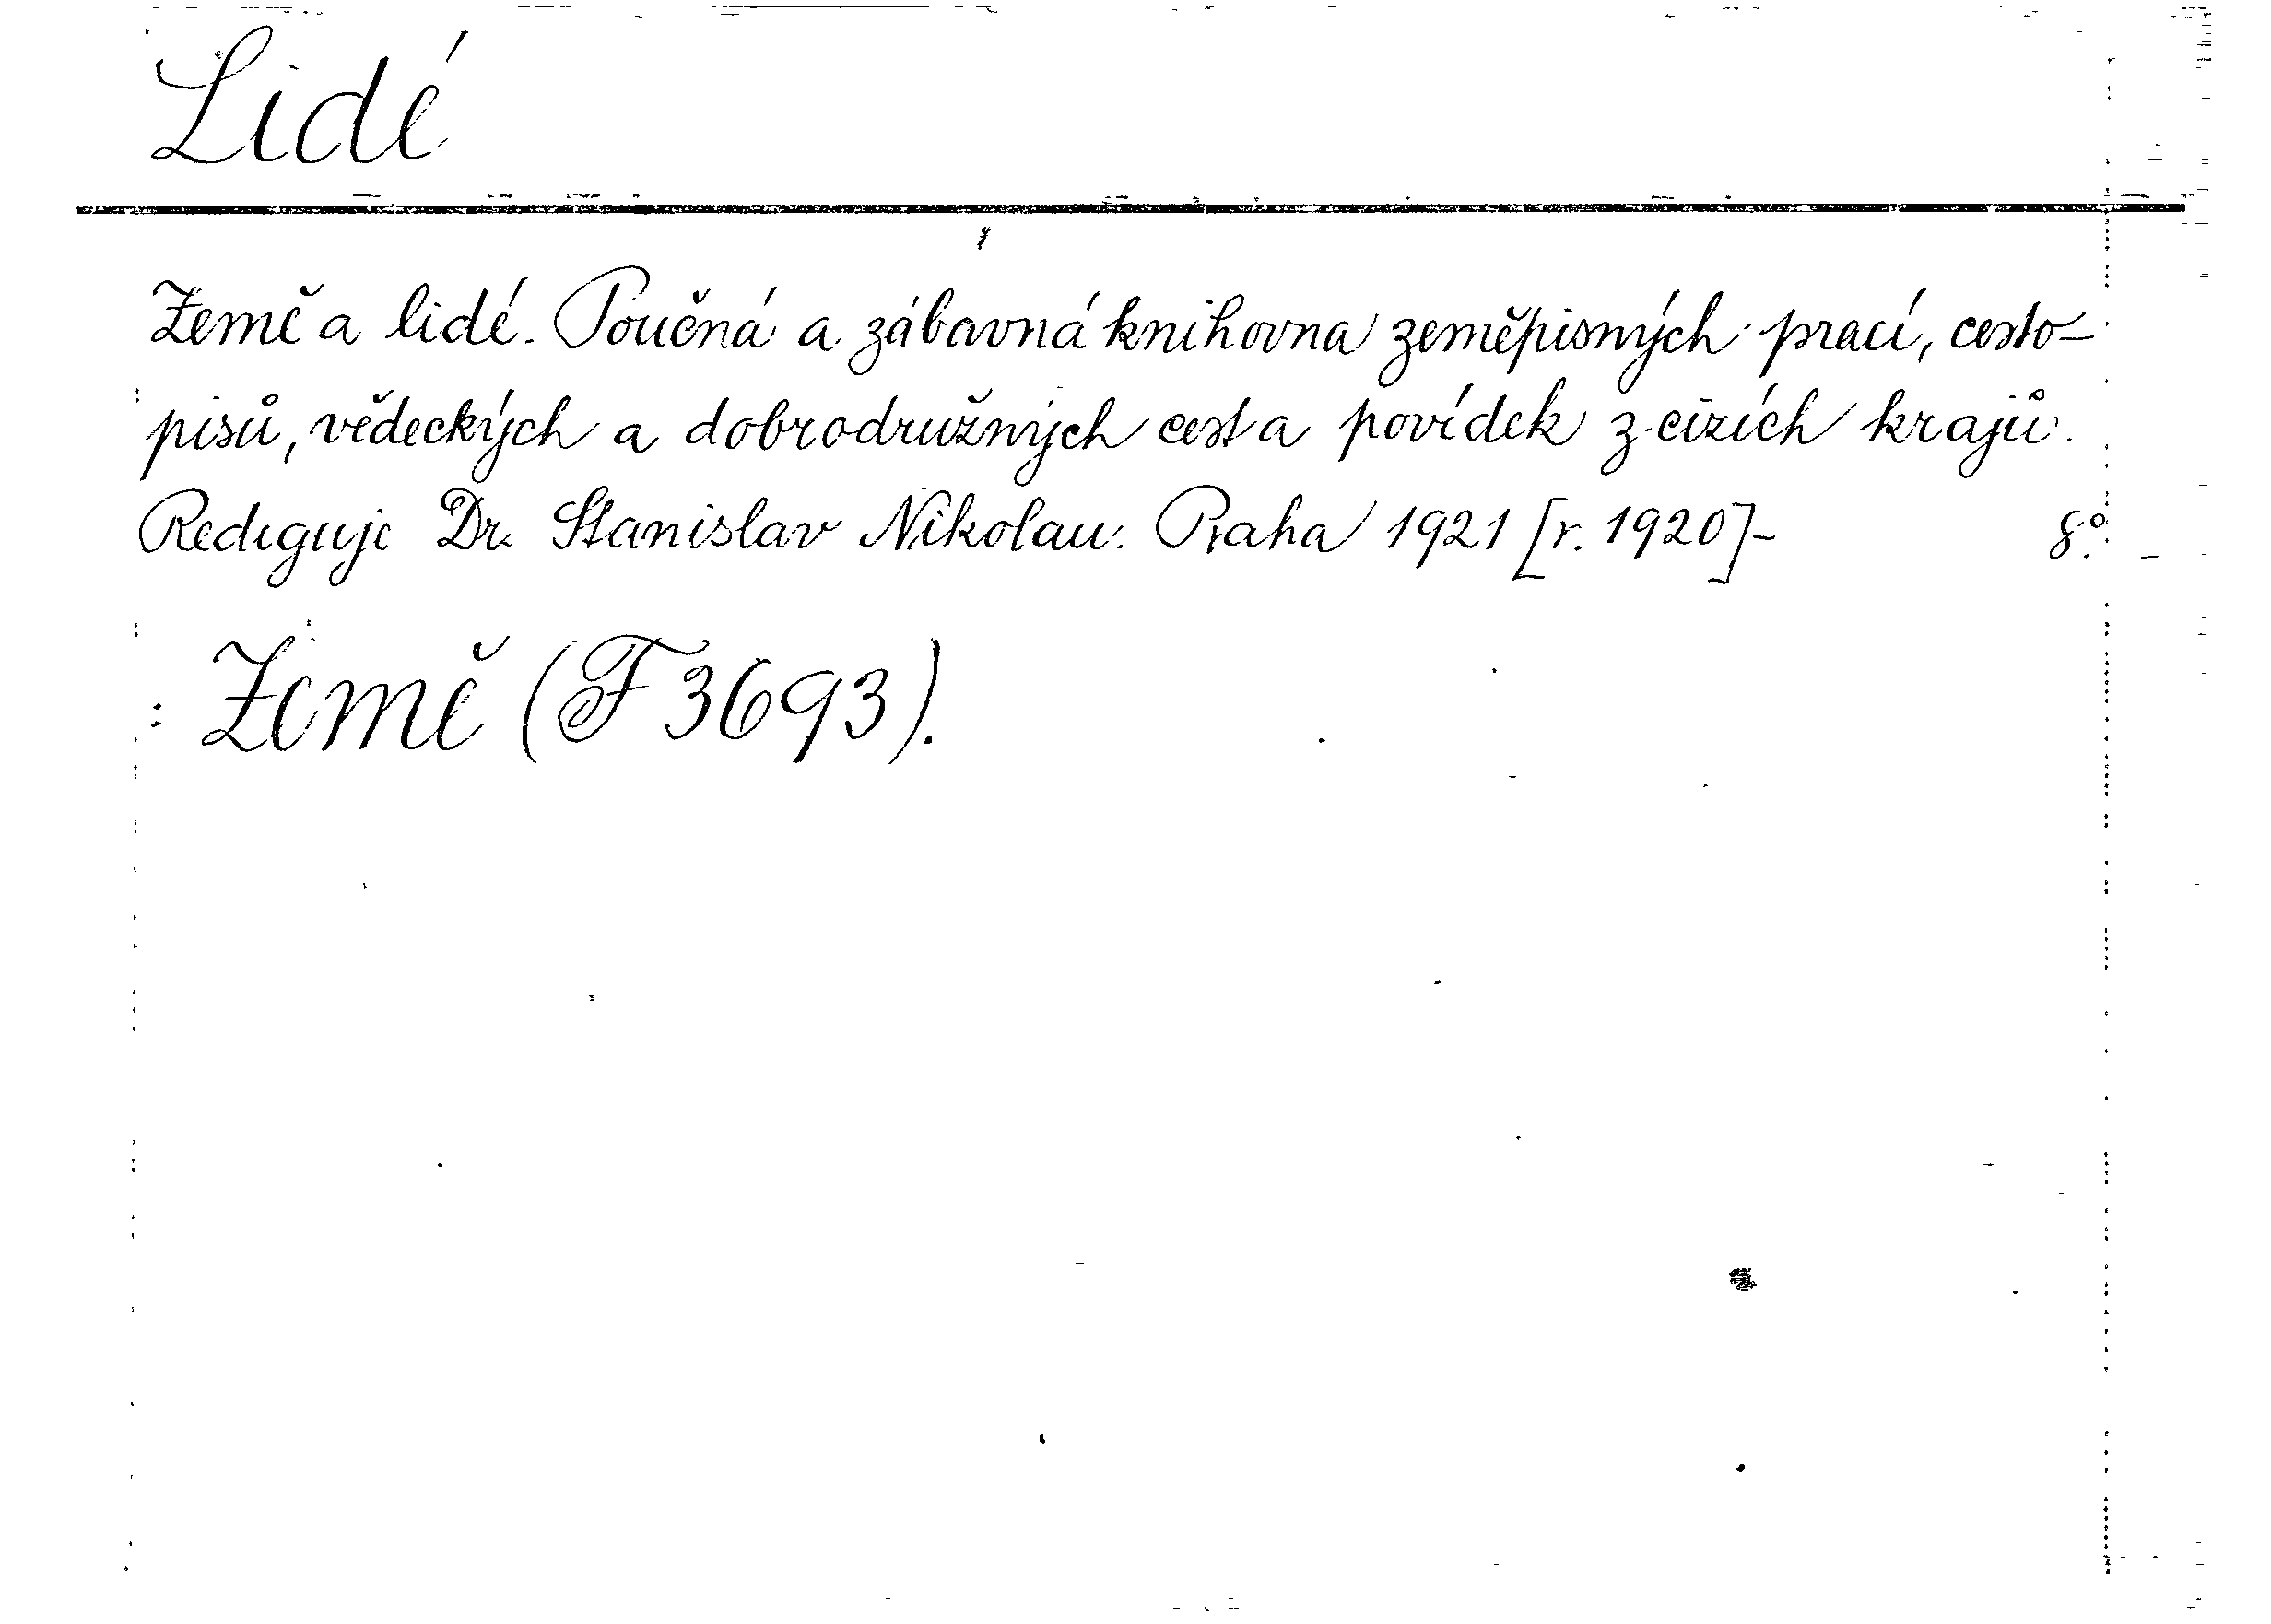 Lidé
Země a lidé. Poučná a zábavná knihovna zeměpisných prací, cesto-
pisů, vědeckých a dobrodružných cest a povídek z cizích krajů.
Rediguje Dr. Stanislav Nikolau. Praha 1921 [r. 1920]- 8°.
: Země (F 3693).